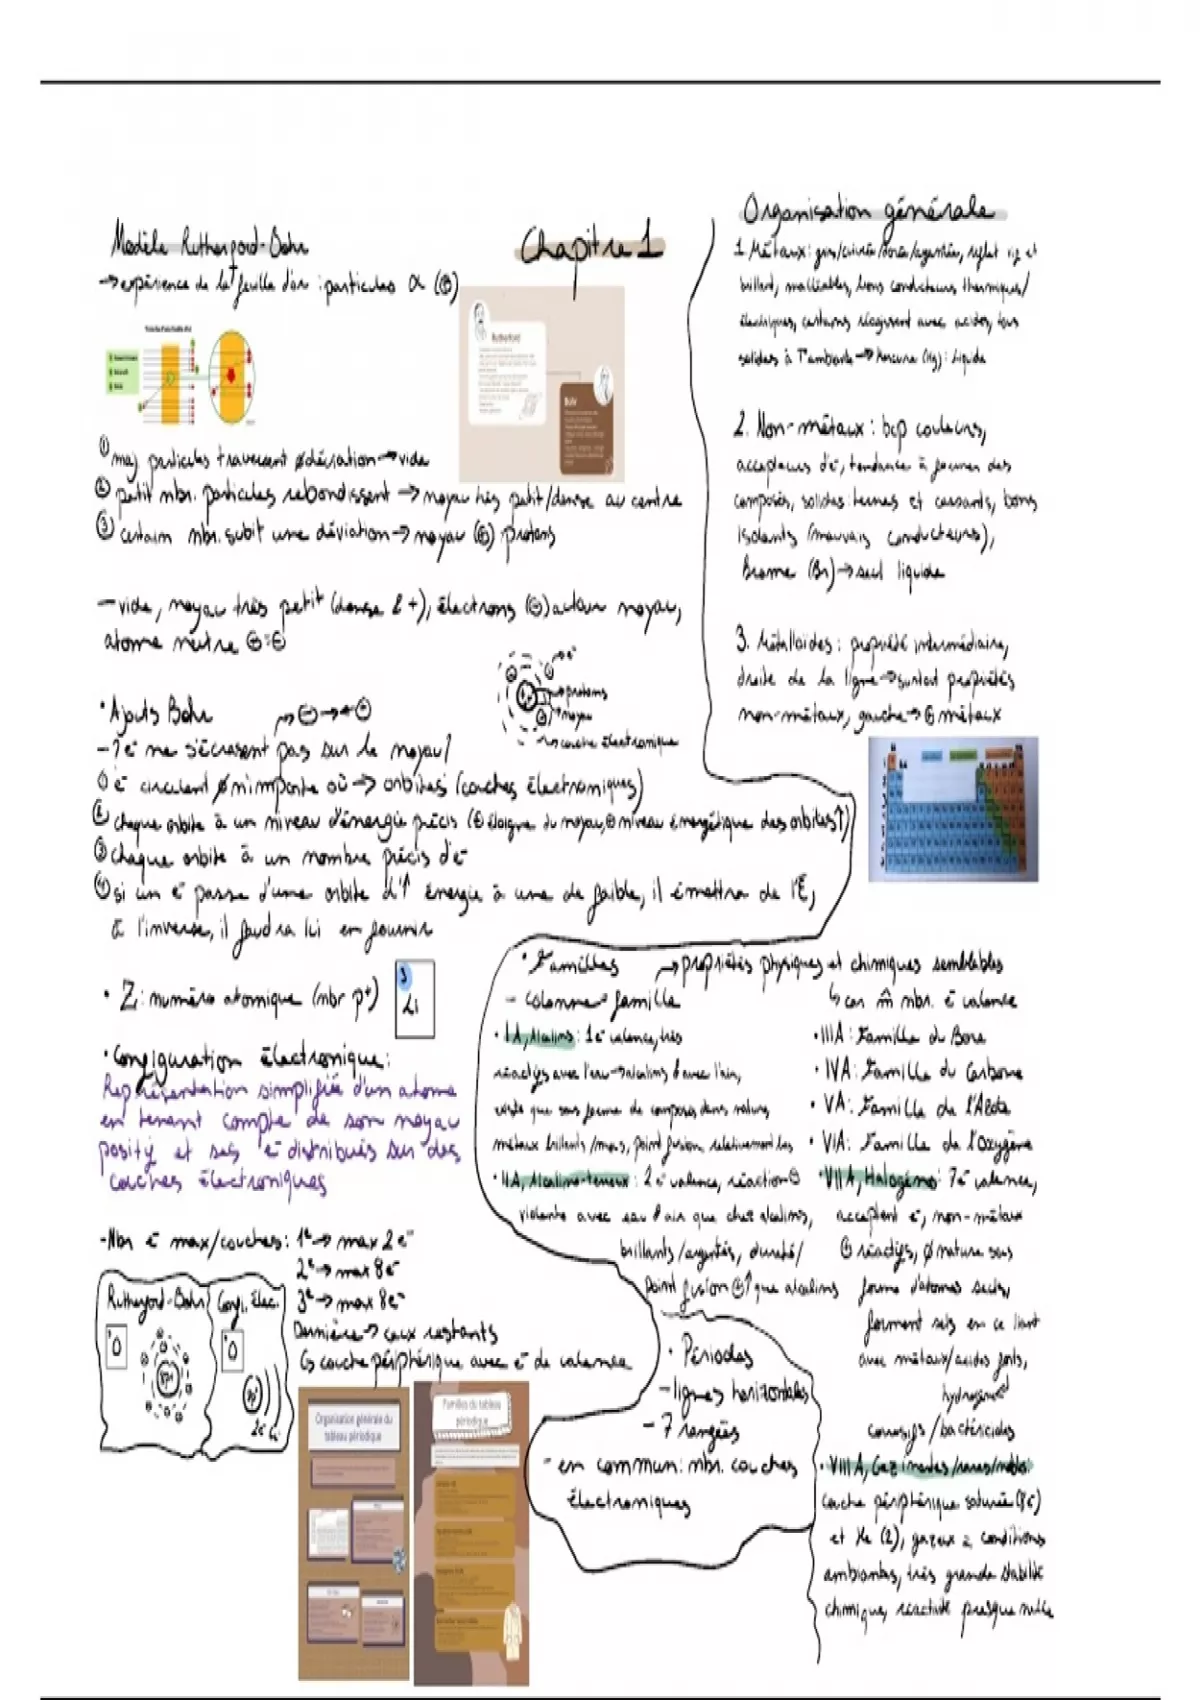 Chapitre 1
Modèle Rutherford-Bohr
→ expérience de la feuille d'or : particules α (⊕)
Rutherford
Bohr
① maj particules traversent ∅ déviation → vide
② petit nbr. particules rebondissent → noyau très petit/dense au centre
③ certain nbr. subit une déviation → noyau (⊕) protons
- vide, noyau très petit (dense & +), électrons (⊖) autour noyau,
atome neutre ⊕=⊖
e⁻
protons
noyau
couche électronique
• Ajouts Bohr
↱ ⊖ → ← ⊕
- ? é ne s'écrasent pas sur le noyau?
① é circulent ∅ n'importe où → orbites (couches électroniques)
② chaque orbite à un niveau d'énergie précis (⊕ éloigne du noyau, ⊕ niveau énergétique des orbites ↑)
③ chaque orbite à un nombre précis d'e⁻
④ si un e⁻ passe d'une orbite d'↑ énergie à une de faible, il émettra de l'É,
à l'inverse, il faudra lui en fournir
• Z : numéro atomique (nbr p⁺)
3
Li
• Configuration électronique :
Représentation simplifiée d'un atome
en tenant compte de son noyau
positif et ses e⁻ distribués sur des
couches électroniques
- Nbr é max/couches : 1ᵉ → max 2 e⁻
2ᵉ → max 8 e⁻
3ᵉ → max 8 e⁻
Dernière → ceux restants
↳ couche périphérique avec e⁻ de valence
Rutherford-Bohr
Confi. élec.
O
O
8p⁺
8p⁺
2e⁻ 6e⁻
Organisation générale du
tableau périodique
Familles du tableau
périodique
Organisation générale
1. Métaux : gris/cuivré/doré/argentés, reflet
brillant, malléables, bons conducteurs thermiques/
électriques, certains réagissent avec acides, tous
solides à T° ambiante → Mercure (Hg) : liquide
2. Non-métaux : bcp couleurs,
accepteurs d'é, tendance à former des
composés, solides : ternes et cassants, bons
isolants (mauvais conducteurs),
Brome (Br) → seul liquide
3. Métalloïdes : propriété intermédiaire,
droite de la ligne → surtout propriétés
non-métaux, gauche → ⊕ métaux
• Familles → propriétés physiques et chimiques semblables
↳ car m̂ nbr. é valence
- colonne = famille
• IA, Alcalins : 1 é valence, très
réactifs avec l'eau → alcalins & avec l'air,
existe que sous forme de composés dans nature,
métaux brillants/mous, point fusion relativement bas
• IIA, Alcalino-terreux : 2 é valence, réaction ⊖
violente avec eau & air que chez alcalins,
brillants/argentés, dureté/
point fusion ⊕↑ que alcalins
• IIIA : Famille du Bore
• IVA : Famille du Carbone
• VA : Famille de l'Azote
• VIA : Famille de l'Oxygène
• VIIA, Halogène : 7 é valence,
acceptent é, non-métaux
⊕ réactifs, ∅ nature sous
forme d'atomes seuls,
forment sels en ce liant
avec métaux/acides forts,
hydrogène
corrosifs/bactéricides
• VIIIA, Gaz inertes/rares/nobles
couche périphérique saturée (8 é)
et He (2), gazeux à conditions
ambiantes, très grande stabilité
chimique, réactivité presque nulle
• Périodes
- lignes horizontales
- 7 rangées
- en commun : nbr. couches
électroniques